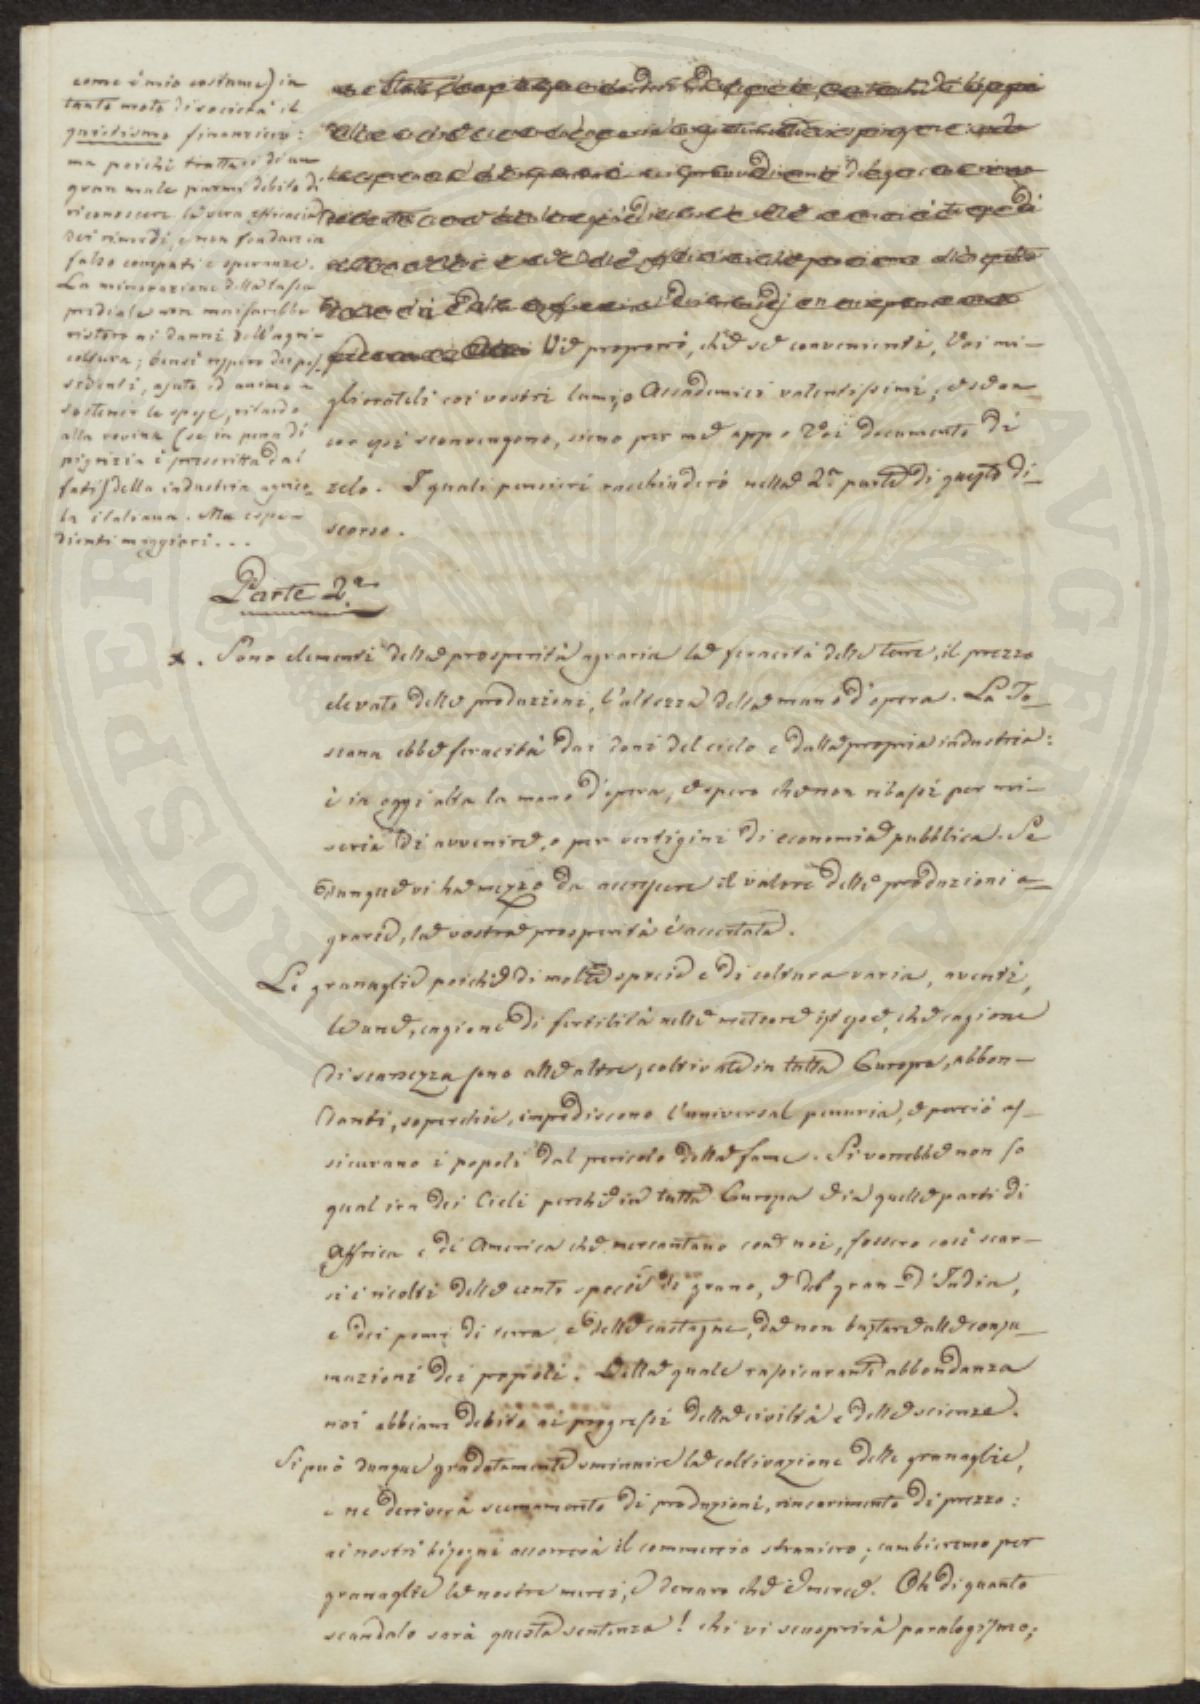 come è mio costume) in
tanto moto di società il
quietismo finanziero:
ma poichè trattasi di un
gran male parmi debito di
riconoscere la vera efficacia
dei rimedj, e non fondare in
falso computi e speranze.
La minorazione della tassa
prediale non mai sarebbe
ristoro ai danni dell'agri-
coltura; bensì
sidenti, ajuto ed animo a
sostenere le spese, ritardo
alla rovina (se in pena di
pigrizia è prescritta dai
fati) della industria agrico-
la italiana. Ma espe-
dienti maggiori...
Vi proporrò, che se convenienti, Voi mi-
gliorateli coi vostri lumi, o Accademici valentissimi; e se an-
cor essi sconvengono, sieno per me app.o Voi documento di
zelo. I quali pensieri racchiuderò nella 2a parte di questo di-
scorso.
Parte 2a
x. Sono elementi della prosperità agraria la feracità delle terre, il prezzo
elevato delle produzioni, l'altezza della mano d'opera. La To-
scana ebbe feracità dai doni del cielo e dalla propria industria:
è in oggi alta la mano d'opera, e spero che non ribassi per mi-
seria di avvenire, o per vertigini di economia pubblica. Se
dunque vi ha mezzo da accrescere il valore delle produzioni a-
grarie, la vostra prosperità è accertata.
Le granaglie poichè di molte specie e di coltura varia, aventi,
le une, cagione di fertilità nelle meteore istesse, che cagione
di scarsezza sono alle altre; coltivate in tutta Europa, abbon-
danti, soperchie, impediscono l'universal penuria, e perciò as-
sicurano i popoli dal pericolo della fame. Si vorrebbe non so
qual ira dei Cieli perchè in tutta Europa e in quelle parti di
Affrica e di America che mercantano con noi, fossero così scar-
si i ricolti delle cento specie di grano, e del gran-d'India,
e dei pomi di terra e delle castagne, da non bastare alle consu-
mazioni dei popoli. Della quale rassicurante abbondanza
noi abbiamo debito ai progressi della civiltà e delle scienze.
Si può dunque gradatamente sminuire la coltivazione delle granaglie,
e ne deriverà scemamento di produzioni, rincarimento di prezzo:
ai nostri bisogni accorrerà il commercio straniero; cambieremo per
granaglie le nostre merci, e denaro che è merce. Oh di quanto
scandalo sarà questa sentenza! chi vi scuoprirà paralogismo;